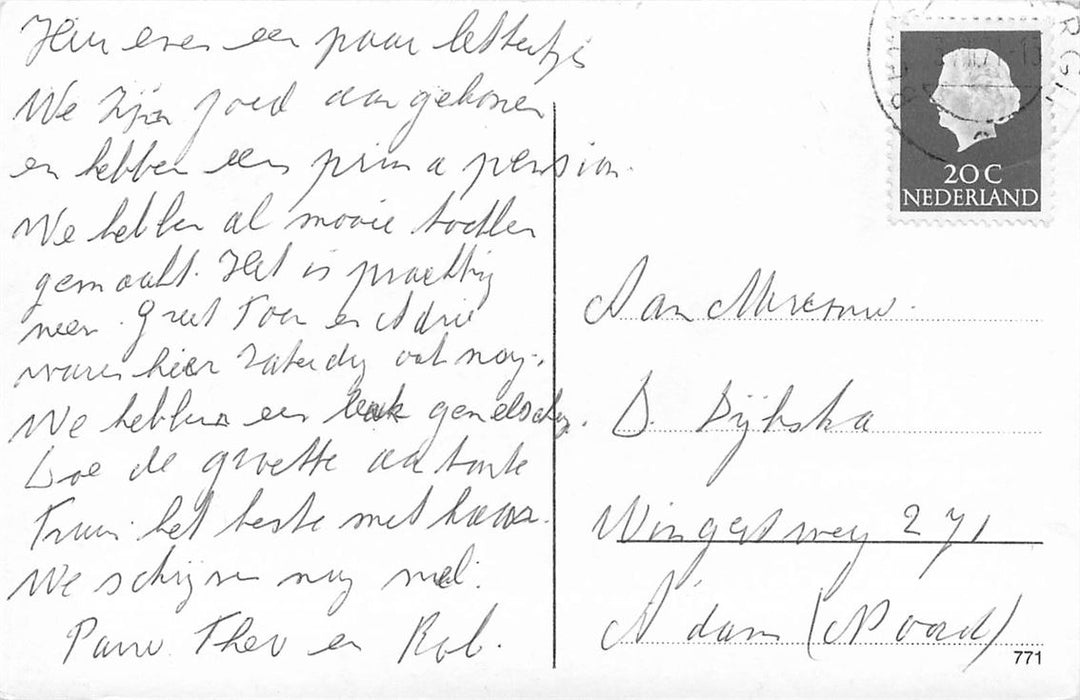 Hier even een paar lettertjes
We zijn goed aangekomen
en hebben een prima pension.
We hebben al mooie tochten
gemaakt. Het is prachtig
weer. Greet Toon en Adrie
waren hier Zaterdag ook nog.
We hebben een leuk gezelschap.
Doe de groette aan tante
Truus het beste met haar.
We schijven nog wel.
Theo en Rob.
20 C
NEDERLAND
Aan Mevrouw.
D. Dijkstra
Wingerdweg 271
A'dam (Noord)
771